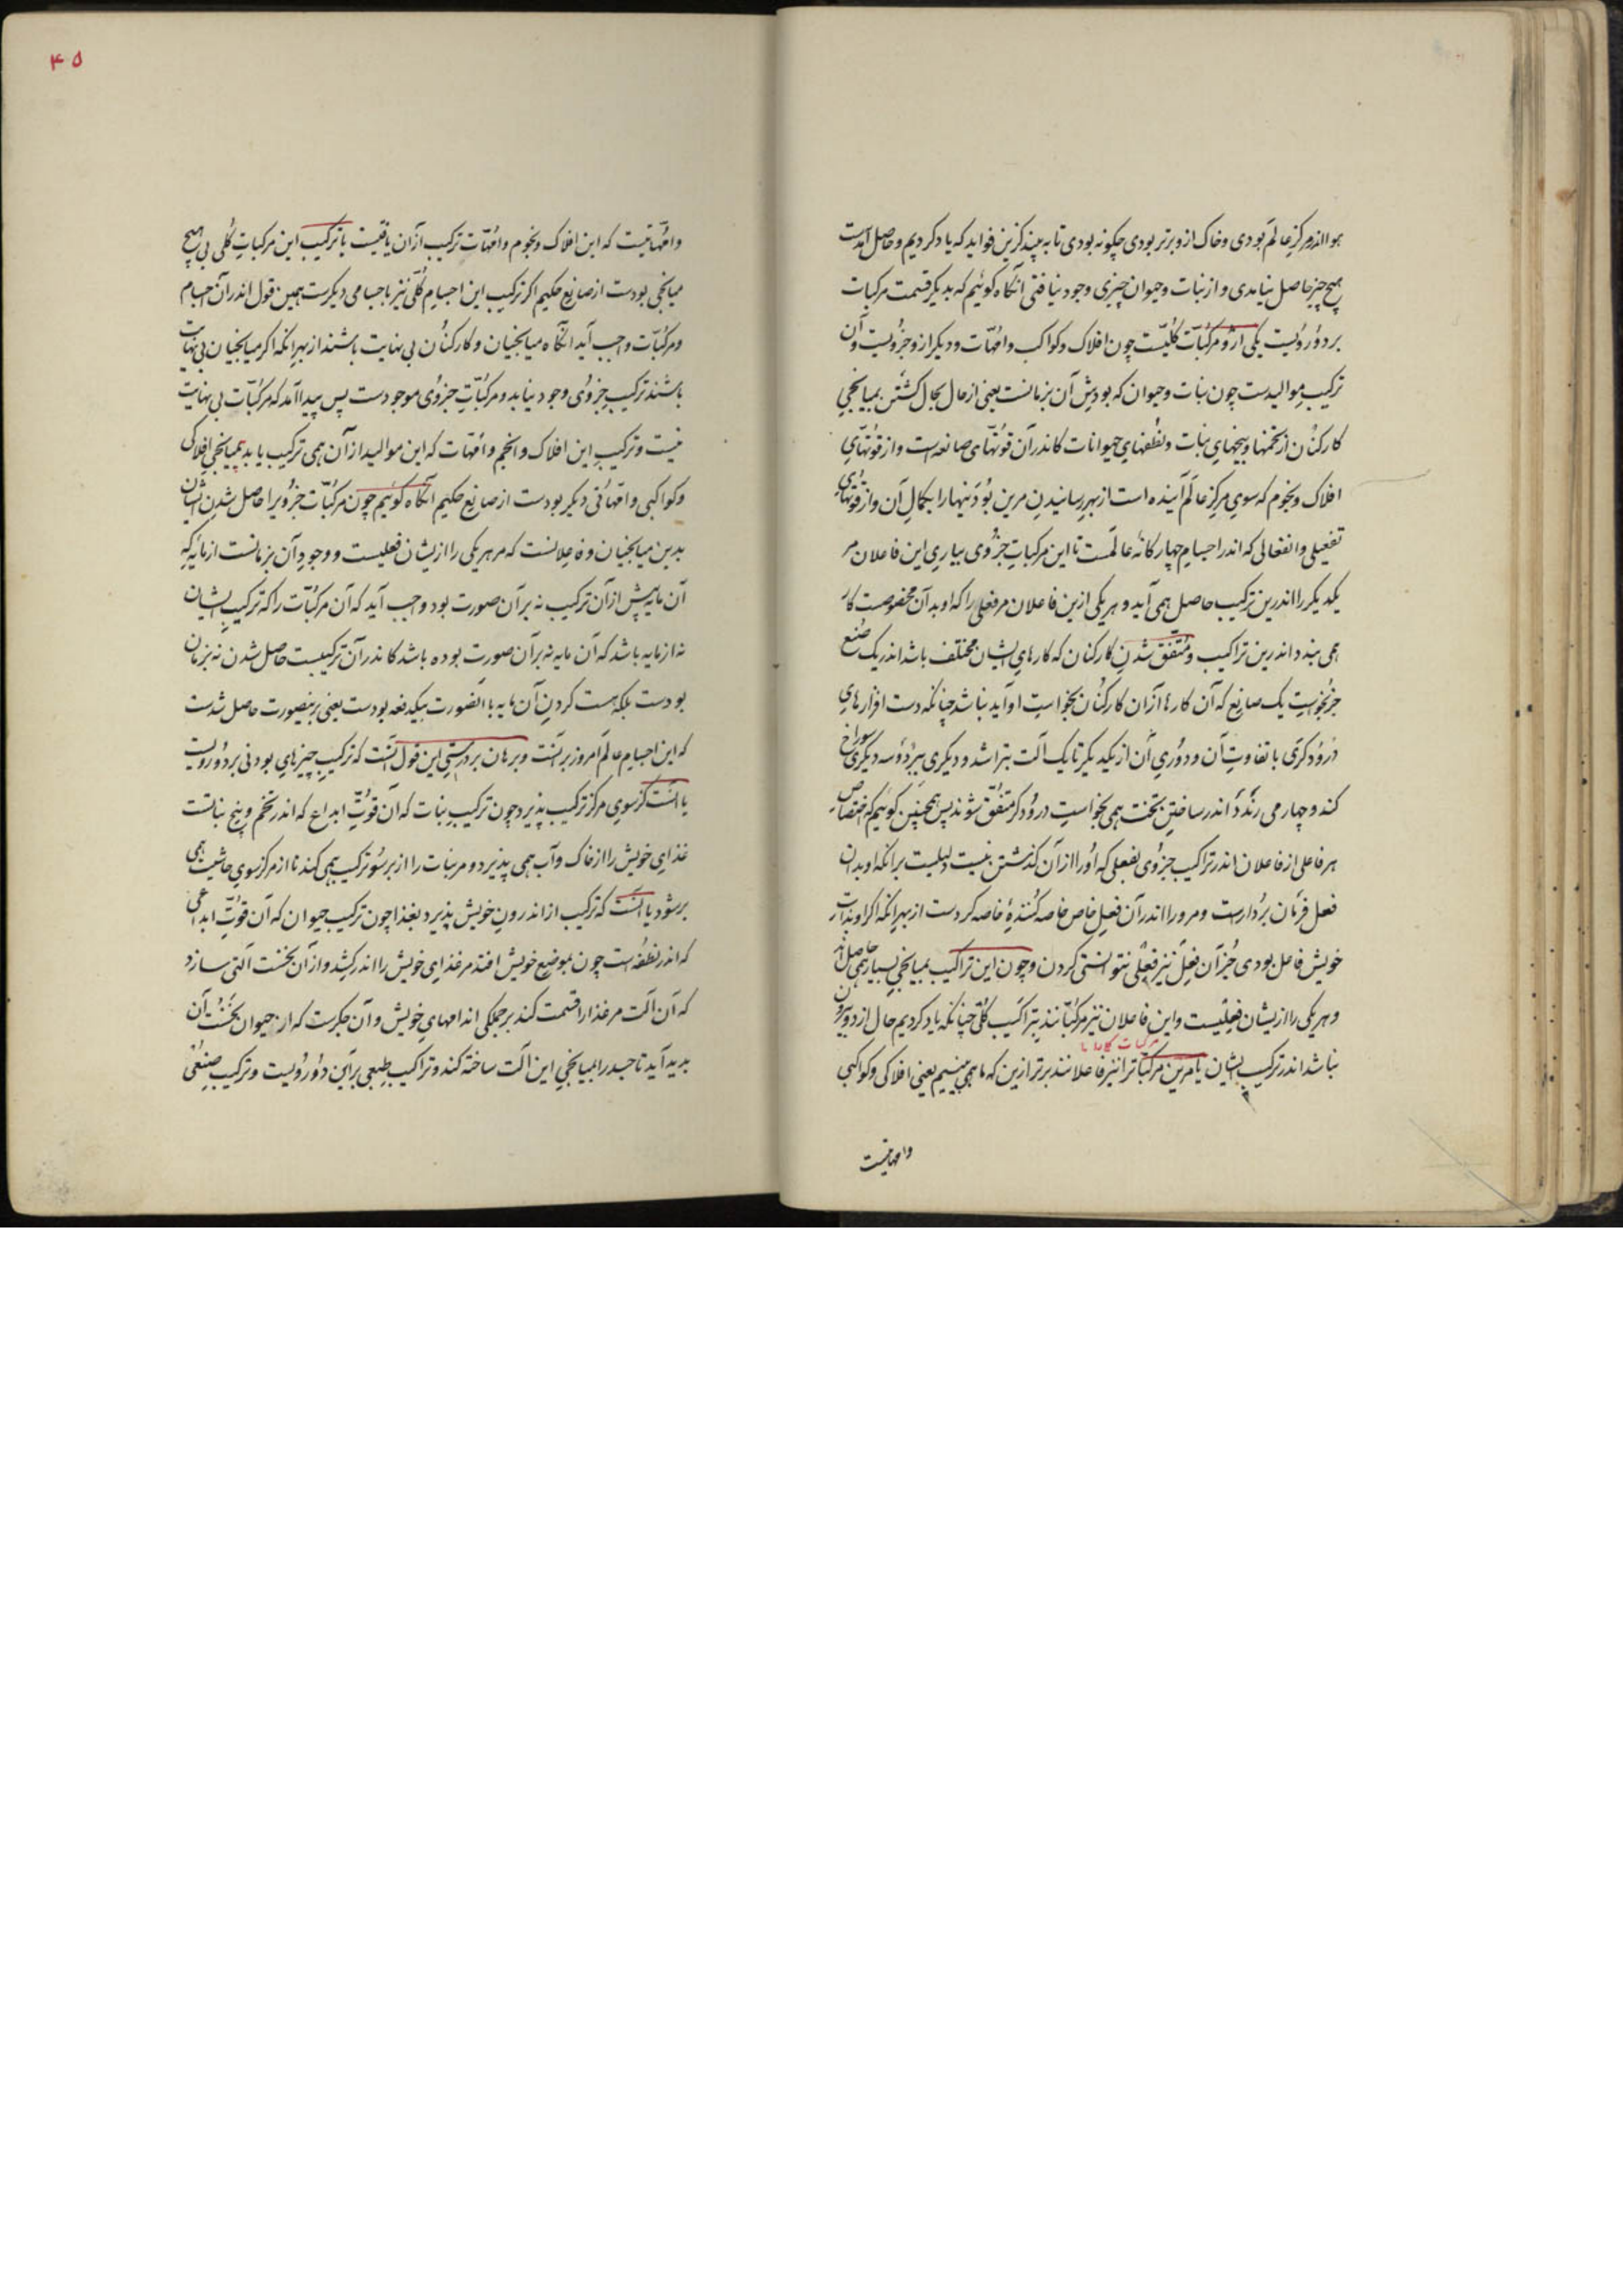 هوا اندر مرکز عالم بودی و خاک ازو برتر بودی چگونه بودی تا به بیند کزین فواید که یاد کردیم و حاصل آمدست
هیچ چیز حاصل نیامدی و از نبات و حیوان چیزی وجود نیافتی آنگاه گوئیم که بدیگر قسمت مرکبات
بر دو رویست یکی ازو مرکّبات کلیّست چون افلاک و کواکب و امّهات و دیگر ازو جزویست و آن
ترکیب موالیدست چون نبات و حیوان که بودش آن بزمانست یعنی از حال بحال گشتن بمیانجی
کارکنان از تخمها و بیخهای نبات و نطفهای حیوانات کاندر آن قوّتهای صانعه است و از قوّتهای
افلاک و نجوم که سوی مرکز عالم آینده است از بهر رسانیدن مرین بودنیها را بکمال آن و از قوتهای
تفعیلی و انفعالی که اندر اجسام چهارگانهٔ عالمست تا این مرکبات جزوی بیاری این فاعلان مر
یکدیگر را اندرین ترکیب حاصل همی آید و هر یکی ازین فاعلان مر فعلی را که او بدان مخصوصست کار
همی بندد اندرین تراکیب و متّفق شدن کارکنان که کارهای ایشان مختلف باشد اندر یک صنع
جز بخواست یک صانع که آن کارها از آن کارکنان بخواست او آید نباشد چنانکه دست افزارهای
درودگری با تفاوت آن و دوری آن از یکدیگر تا یک آلت بتراشد و دیگری ببرد و سه دیگری سوراخ
کند و چهارمی رندد اندر ساختن تخت همی بخواست درودگر متفّق شوند پس همچنین گوئیم که اختصاص
هر فاعلی از فاعلان اندر تراکیب جزوی بفعلی که او را از آن گذشتن نیست دلیلست برانکه او بدان
فعل فرمان بردارست و مرو را اندر آن فعل خاص خاصه کنندهٔ خاصه کردست از بهر انکه اگر او بذات
خویش فاعل بودی جز آن فعل نیز فعلی نتوانستی کردن و چون این تراکیب بمیانجی بسیار همی حاصل آید
و هر یکی را ازیشان فعلیست و این فاعلان نیز مرکّبانند بتراکیب کلّی چنانکه یاد کردیم حال از دو بیرون
مرکبات
نباشد اندر ترکیب ایشان یا مرین مرکّباترا نیز فاعلانند برتر ازین که ما همی بینیم یعنی افلاکی و کواکبی
وامهاتیست
۴۵
وامّهاتیست که این افلاک و نجوم و امّهات ترکیب از آن یافتست یا ترکیب این مرکبات کلّی بی هیچ
میانجی بودست از صانع حکیم اگر ترکیب این اجسام کلّی نیز باجسامی دیگرست همین قول اندر آن اجسام
و مرکبّات واجب آید انگاه میانجیان و کارکنان بی نهایت باشند از بهر انکه اگر میانجیان بی نهایت
باشند ترکیب جزوی وجود نیابد و مرکّبات جزوی موجودست پس پیدا آمد که مرکبّات بی نهایت
نیست و ترکیب این افلاک و انجم و امّهات که این موالید از آن همی ترکیب یابد بمیانجی افلاکی
و کواکبی و امّهاتی دیگر بودست از صانع حکیم انگاه گوئیم چون مرکبّات جزویرا حاصل شدن ایشان
بدین میانجیان و فاعلانست که مر هر یکی را ازیشان فعلیست و وجود آن بزمانست از مایهٔ که
آن مایه پیش از آن ترکیب نه بر آن صورت بود واجب آید که آن مرکّبات را که ترکیب ایشان
نه از مایه باشد که آن مایه نه بر آن صورت بوده باشد کاندر آن ترکیبست حاصل شدن نه بزمان
بودست بلکه هست کردن آن مایه با آنصورت بیکدفعه بودست یعنی برینصورت حاصل شدست
که این اجسام عالم امروز برآنست و برهان بر درستی این قول آنست که ترکیب چیزهای بودنی بر دو رویست
یا آنست کز سوی مرکز ترکیب پذیرد چون ترکیب نبات که آن قوّت ابداع که اندر تخم و بیخ نباتست
غذای خویش را از خاک و آب همی پذیرد و مر نبات را از بر سو ترکیب همی کند تا از مرکز سوی حاشیت همی
بر شود یا آنست که ترکیب از اندرون خویش پذیرد بغذا چون ترکیب حیوان که آن قوّت ابداعی
که اندر نطفه است چون بموضع خویش افتد مر غذای خویش را اندر کشد و از آن نخست آلتی سازد
که آن آلت مر غذا را قسمت کند بر جملگی اندامهای خویش و آن جگرست که از حیوان نخست آن
پدید آید تا جسد را بمیانجی این آلت ساخته کند و تراکیب طبعی برین دو رویست و ترکیب صنعی